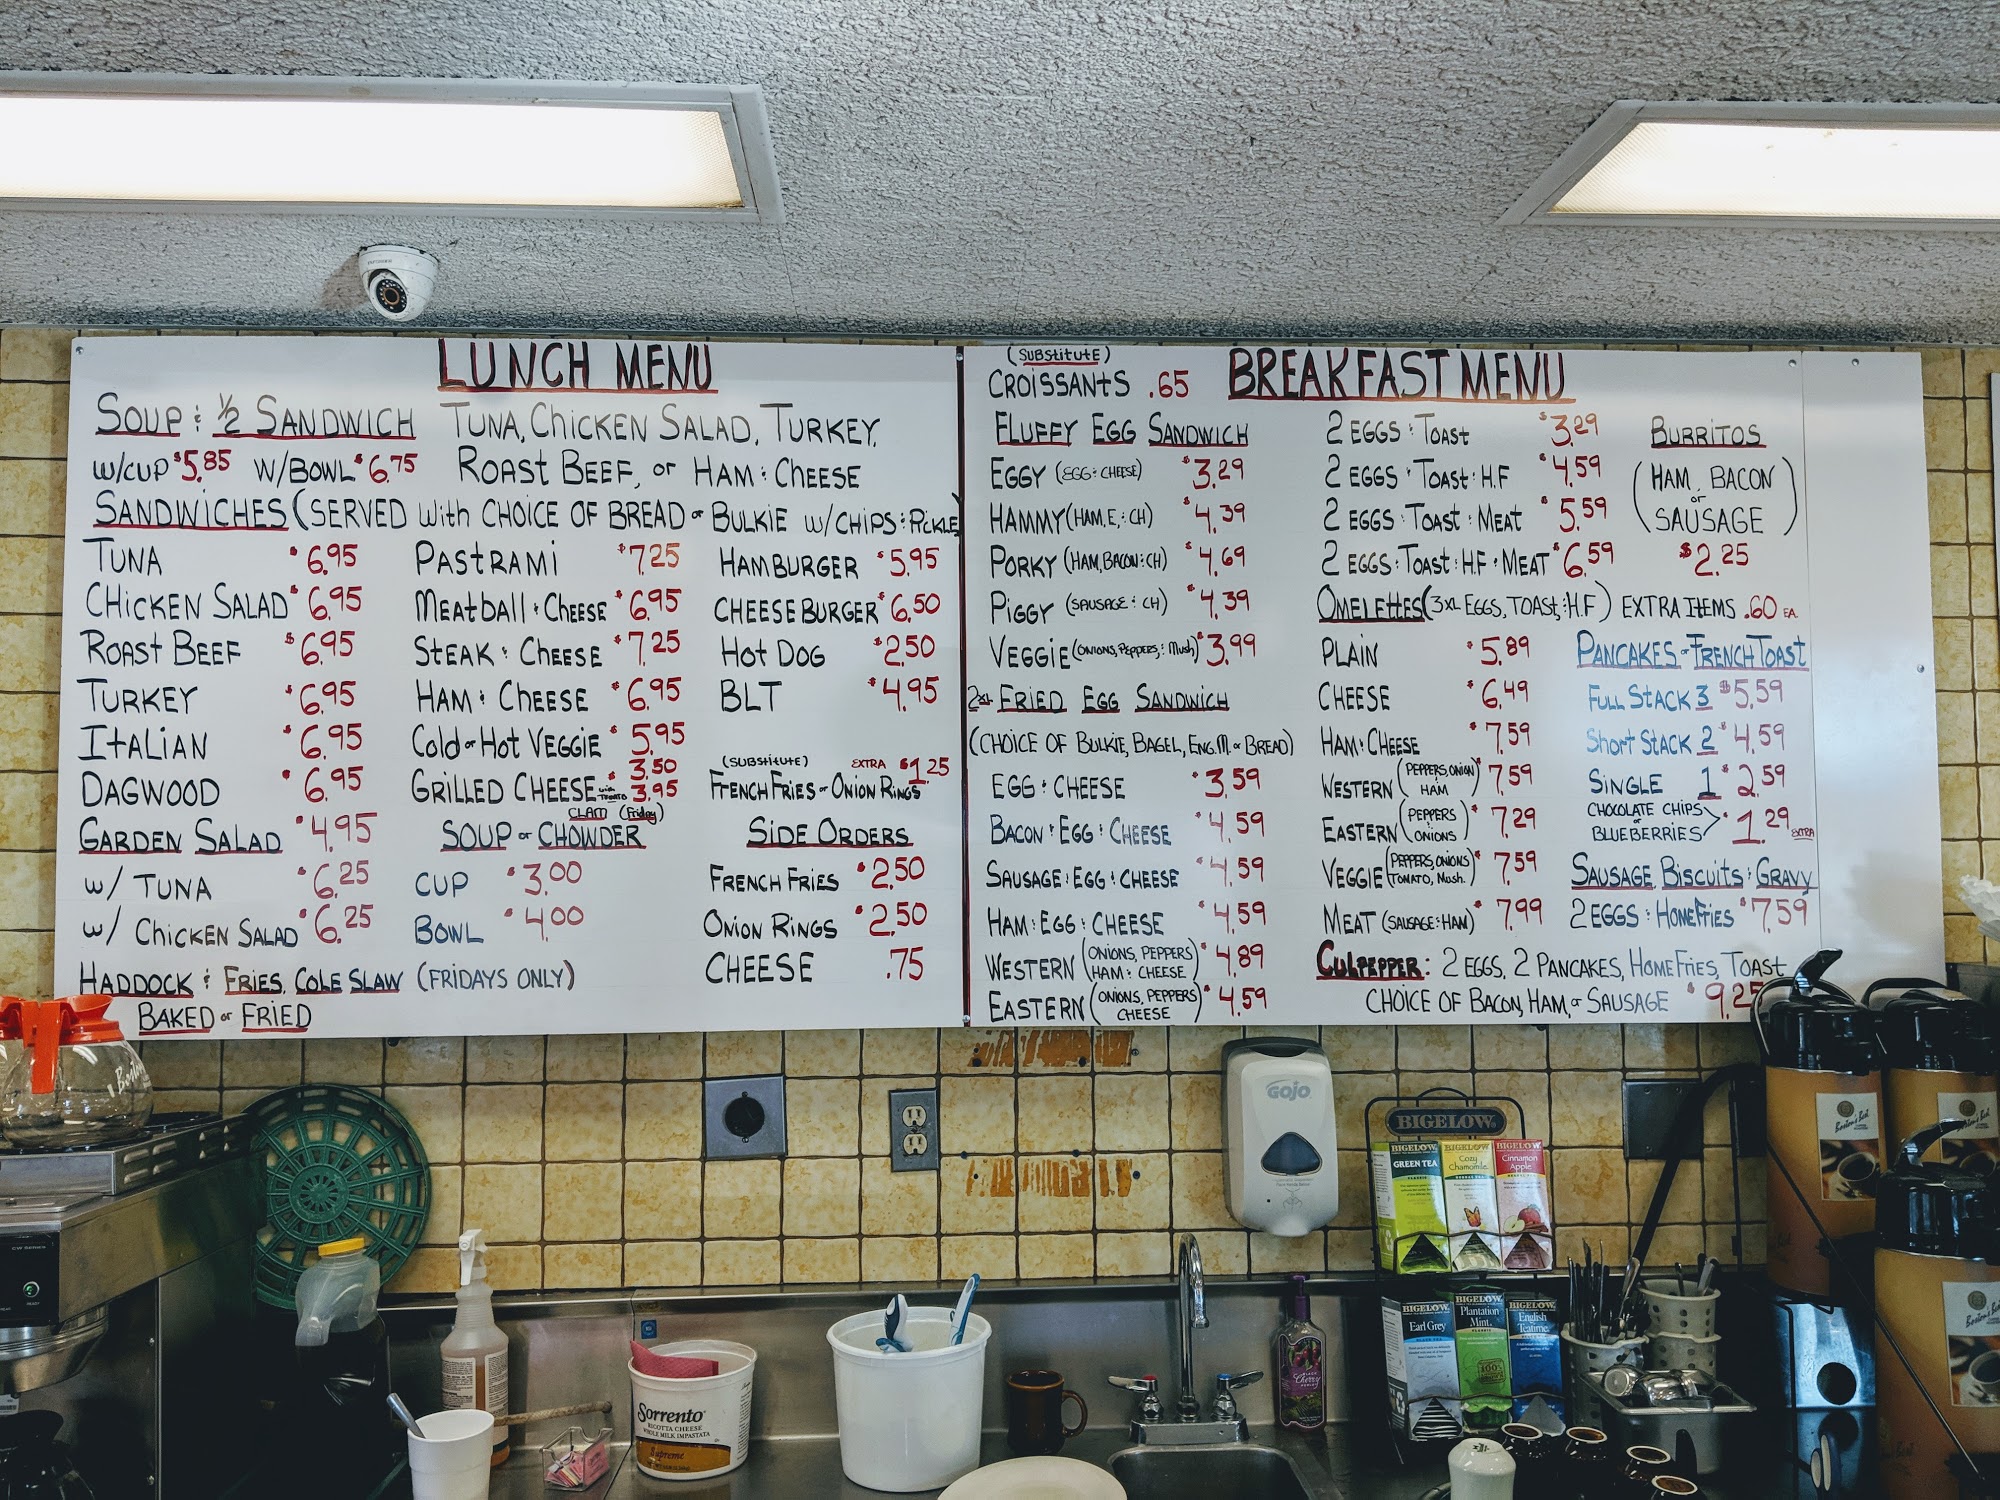 LUNCH MENU
SOUP & 1/2 SANDWICH TUNA, CHICKEN SALAD, TURKEY,
W/CUP $5.85 W/BOWL $6.75 ROAST BEEF, or HAM & CHEESE
SANDWICHES (SERVED with CHOICE OF BREAD or BULKIE W/CHIPS & PICKLE)
TUNA $6.95
CHICKEN SALAD $6.95
ROAST BEEF $6.95
TURKEY $6.95
ITALIAN $6.95
DAGWOOD $6.95
GARDEN SALAD $4.95
W/ TUNA $6.25
W/ CHICKEN SALAD $6.25
HADDOCK & FRIES, COLE SLAW (FRIDAYS ONLY)
BAKED or FRIED
PASTRAMI $7.25
MEATBALL & CHEESE $6.95
STEAK & CHEESE $7.25
HAM & CHEESE $6.95
COLD or HOT VEGGIE $5.95
GRILLED CHEESE $3.50
with TOMATO $3.95
CLAM (Friday)
SOUP or CHOWDER
CUP $3.00
BOWL $4.00
HAMBURGER $5.95
CHEESEBURGER $6.50
HOT DOG $2.50
BLT $4.95
(SUBSTITUTE) EXTRA $1.25
FRENCH FRIES or ONION RINGS
SIDE ORDERS
FRENCH FRIES $2.50
ONION RINGS $2.50
CHEESE .75
(SUBSTITUTE)
CROISSANTS .65
BREAKFAST MENU
FLUFFY EGG SANDWICH
EGGY (EGG & CHEESE) $3.29
HAMMY (HAM, E, & CH) $4.39
PORKY (HAM, BACON & CH) $4.69
PIGGY (SAUSAGE & CH) $4.39
VEGGIE (ONIONS, PEPPERS, & MUSH) $3.99
2 XL FRIED EGG SANDWICH
(CHOICE OF BULKIE, BAGEL, ENG. M. or BREAD)
EGG & CHEESE $3.59
BACON & EGG & CHEESE $4.59
SAUSAGE & EGG & CHEESE $4.59
HAM & EGG & CHEESE $4.59
WESTERN (ONIONS, PEPPERS HAM & CHEESE) $4.89
EASTERN (ONIONS, PEPPERS CHEESE) $4.59
2 EGGS & TOAST $3.29
2 EGGS & TOAST & H.F $4.59
2 EGGS & TOAST & MEAT $5.59
2 EGGS & TOAST & H.F & MEAT $6.59
BURRITOS
(HAM, BACON
or
SAUSAGE)
$2.25
OMELETTES (3XL EGGS, TOAST, & H.F) EXTRA ITEMS .60 EA.
PLAIN $5.89
CHEESE $6.49
HAM & CHEESE $7.59
WESTERN (PEPPERS, ONION HAM) $7.59
EASTERN (PEPPERS & ONIONS) $7.29
VEGGIE (PEPPERS, ONIONS TOMATO, MUSH.) $7.59
MEAT (SAUSAGE & HAM) $7.99
PANCAKES or FRENCH TOAST
FULL STACK 3 $5.59
SHORT STACK 2 $4.59
SINGLE 1 $2.59
CHOCOLATE CHIPS
or
BLUEBERRIES $1.29 EXTRA
SAUSAGE, BISCUITS & GRAVY
2 EGGS & HOMEFRIES $7.59
CULPEPPER: 2 EGGS, 2 PANCAKES, HOMEFRIES, TOAST
CHOICE OF BACON, HAM, or SAUSAGE $9.25
GOJO
BIGELOW
BIGELOW
GREEN TEA
CLASSIC
BIGELOW
Cozy
Chamomile
BIGELOW
Cinnamon
Apple
BIGELOW
Earl Grey
BIGELOW
Plantation
Mint
CLASSIC
BIGELOW
English
Teatime
Boston's Best
Boston's Best
Sorrento
RICOTTA CHEESE
WHOLE MILK IMPASTATA
Supreme
Black
Cherry
CW Series
READY